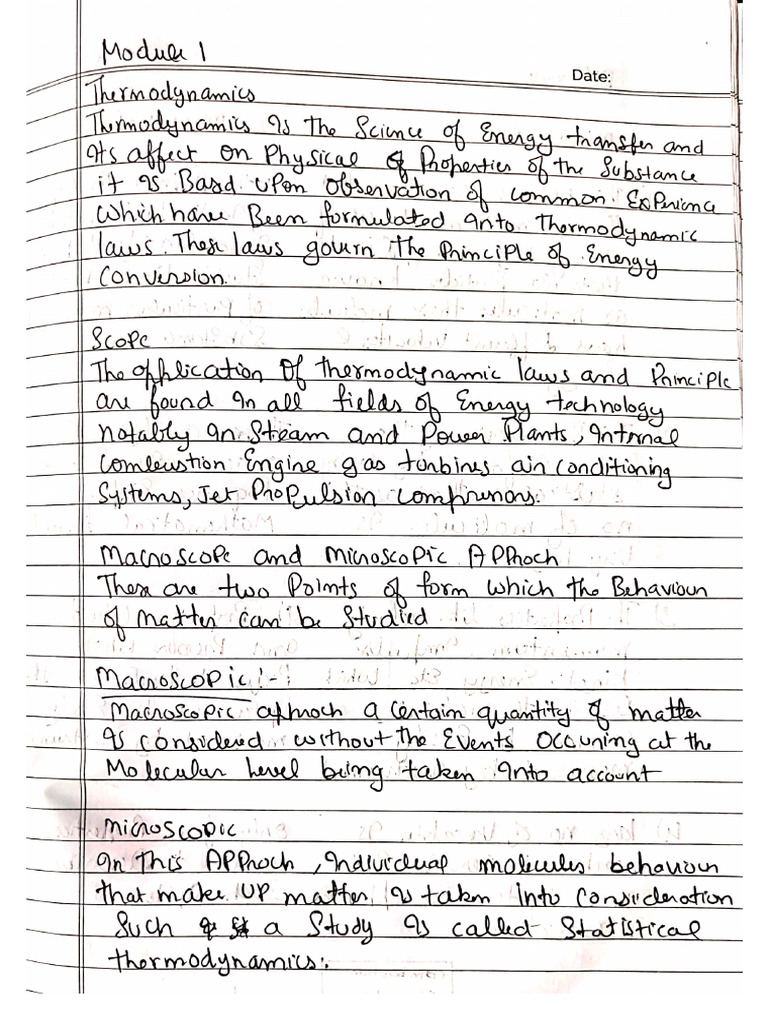 Module 1
Date:
Thermodynamics
Thermodynamics is the Science of Energy transfer and
its affect on Physical & Properties of the Substance
it is Based upon observation of common Experience
which have Been formulated into Thermodynamic
laws. These laws govern the Principle of Energy
Conversion.
Scope
The application of thermodynamic laws and Principle
are found in all fields of Energy technology
notably in Steam and Power Plants, Intrnal
Combustion Engine gas turbines air conditioning
Systems, Jet Propulsion comprenons.
Macroscope and Microscopic APProch
These are two Points of form which the Behaviour
of matter can be Studied
Macroscopic :-
Macroscopic approch a certain quantity of matter
is considered without the Events Occuring at the
Molecular Level being taken into account
Microscopic
In this APProch, Individual molecules behaviour
that make UP matter is taken into Consideration
Such a Study is called Statistical
thermodynamics:.